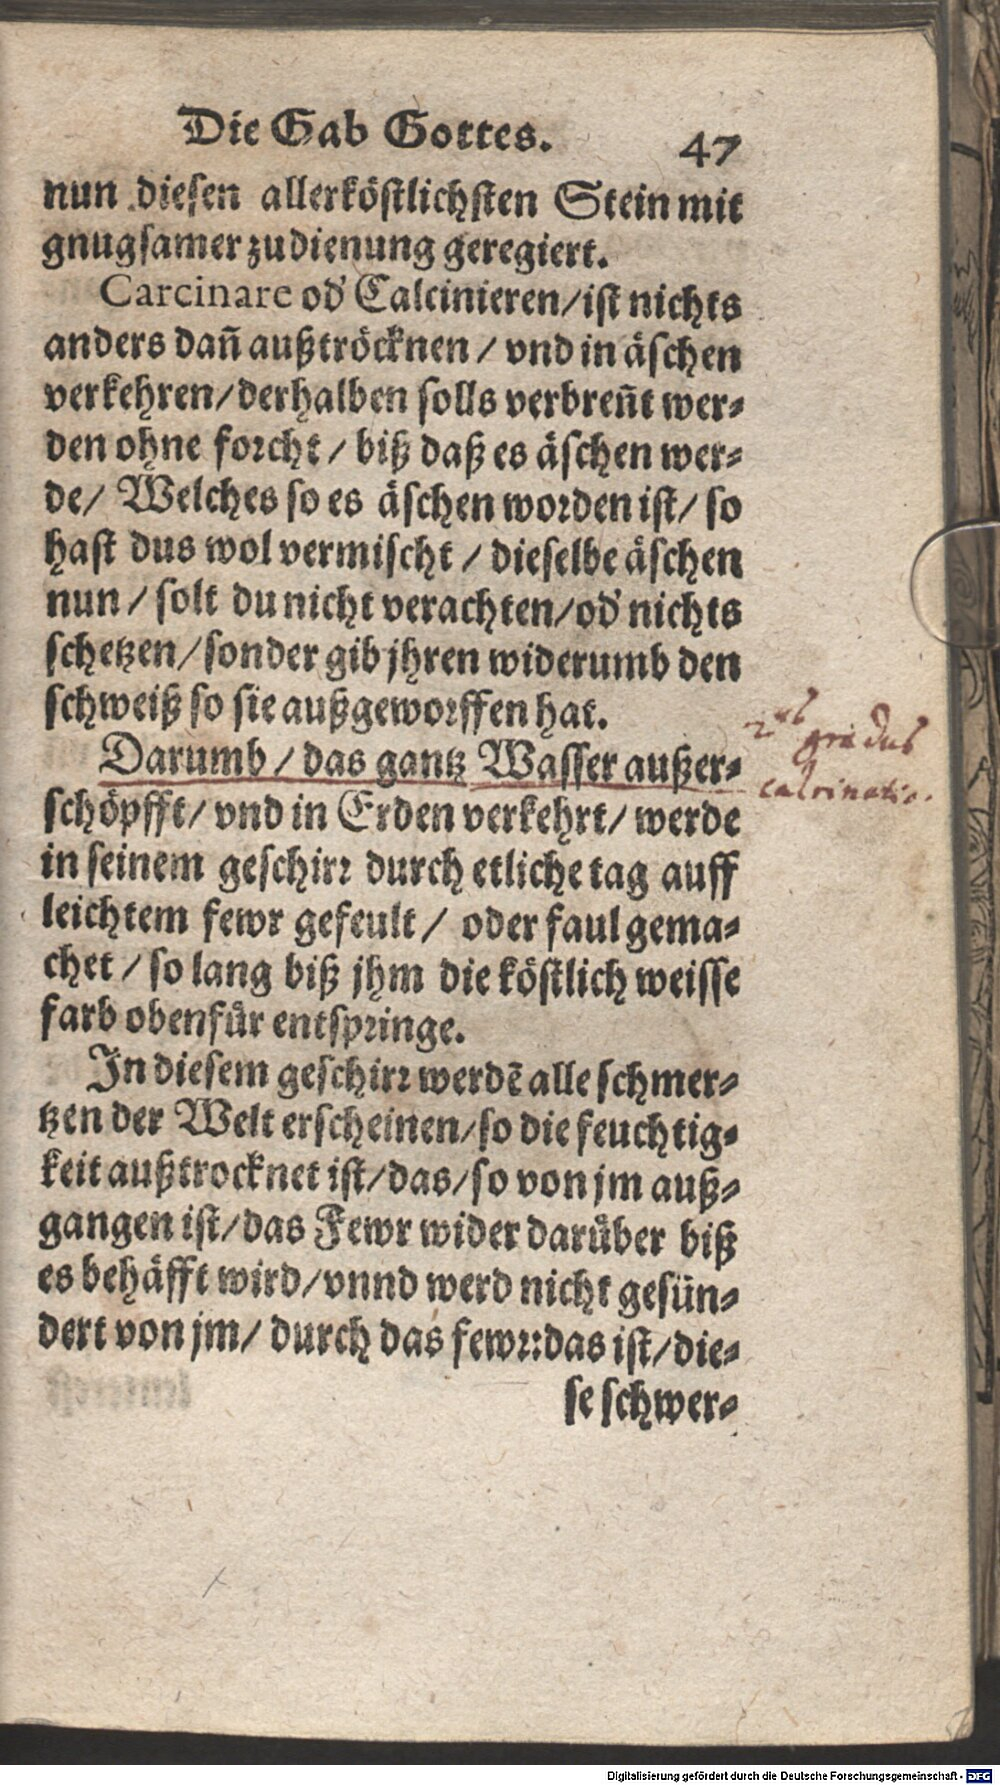 Die Gab Gottes. 47
nun diesen allerköstlichsten Stein mit
gnugsamer zudienung geregiert.
Carcinare od' Calcinieren/ist nichts
anders dañ außtröcknen / vnd in äschen
verkehren/derhalben solls verbreñt wer-
den ohne forcht / biß daß es äschen wer-
de/ Welches so es äschen worden ist/ so
hast dus wol vermischt / dieselbe äschen
nun / solt du nicht verachten/od' nichts
schetzen/sonder gib jhren widerumb den
schweiß so sie außgeworffen hat.
Darumb / das gantz Wasser außer-
schöpfft/ vnd in Erden verkehrt/ werde
in seinem geschirr durch etliche tag auff
leichtem fewr gefeult / oder faul gema-
chet / so lang biß jhm die köstlich weisse
farb obenfůr entspringe.
In diesem geschirr werdẽ alle schmer-
tzen der Welt erscheinen/so die feuchtig-
keit außtrocknet ist/das/so von jm auß-
gangen ist/das Fewr wider darůber biß
es behäfft wird/vnnd werd nicht gesün-
dert von jm/ durch das fewr:das ist/die-
se schwer-
2us gradus
calcinatio.
Digitalisierung gefördert durch die Deutsche Forschungsgemeinschaft - DFG